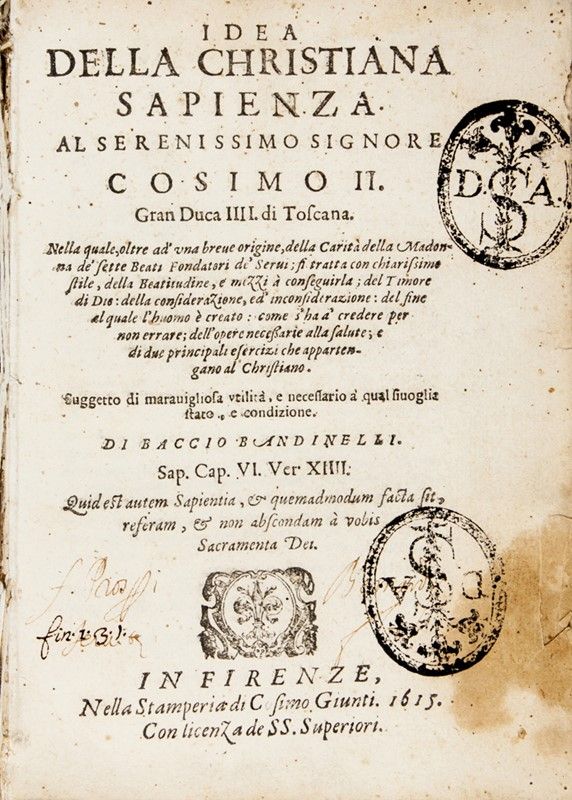 IDEA
DELLA CHRISTIANA
SAPIENZA.
AL SERENISSIMO SIGNORE
COSIMO II.
Gran Duca IIII. di Toſcana.
Nella quale, oltre ad' vna breue origine, della Carità della Madon-
na de' ſette Beati Fondatori de' Serui; ſi tratta con chiariſſimo
ſtile, della Beatitudine, e mezzi à conſeguirla; del Timore
di Dio: della conſiderazione, ed' inconſiderazione: del fine
al quale l'huomo è creato: come s'ha a' credere per
non errare; dell'opere neceſſarie alla ſalute; e
di due principali eſercizi che apparten-
gano al Chriſtiano.
Suggetto di marauiglioſa vtilità, e neceſſario a' qual ſiuoglia
ſtato, e condizione.
DI BACCIO BANDINELLI.
Sap. Cap. VI. Ver XIIII.
Quid eſt autem Sapientia, & quemadmodum facta ſit,
referam, & non abſcondam à vobis
Sacramenta Dei.
IN FIRENZE,
Nella Stamperia di Coſimo Giunti. 1615.
Con licenza de SS. Superiori.
D. S. A.
D. S. A.